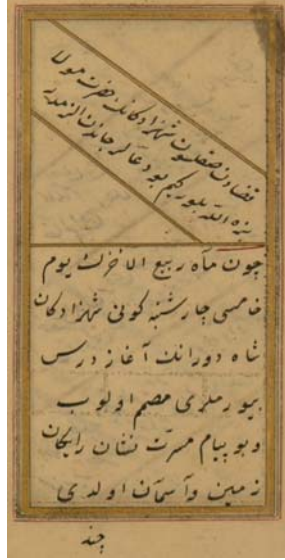 قضادن صقلسون شهزادكانك حضرت مولا
بنه الله بلور كيم بو دعالر جاندن الزمدر
چون ماه ربيع الاخرك يوم
خامسى چارشنبه كونى شهزادكان
شاه دورانك آغاز درس
بيورملرى مصمم اولوب
وبو پيام مسرت نشان رايكان
زمين وآسمان اولدى
چند